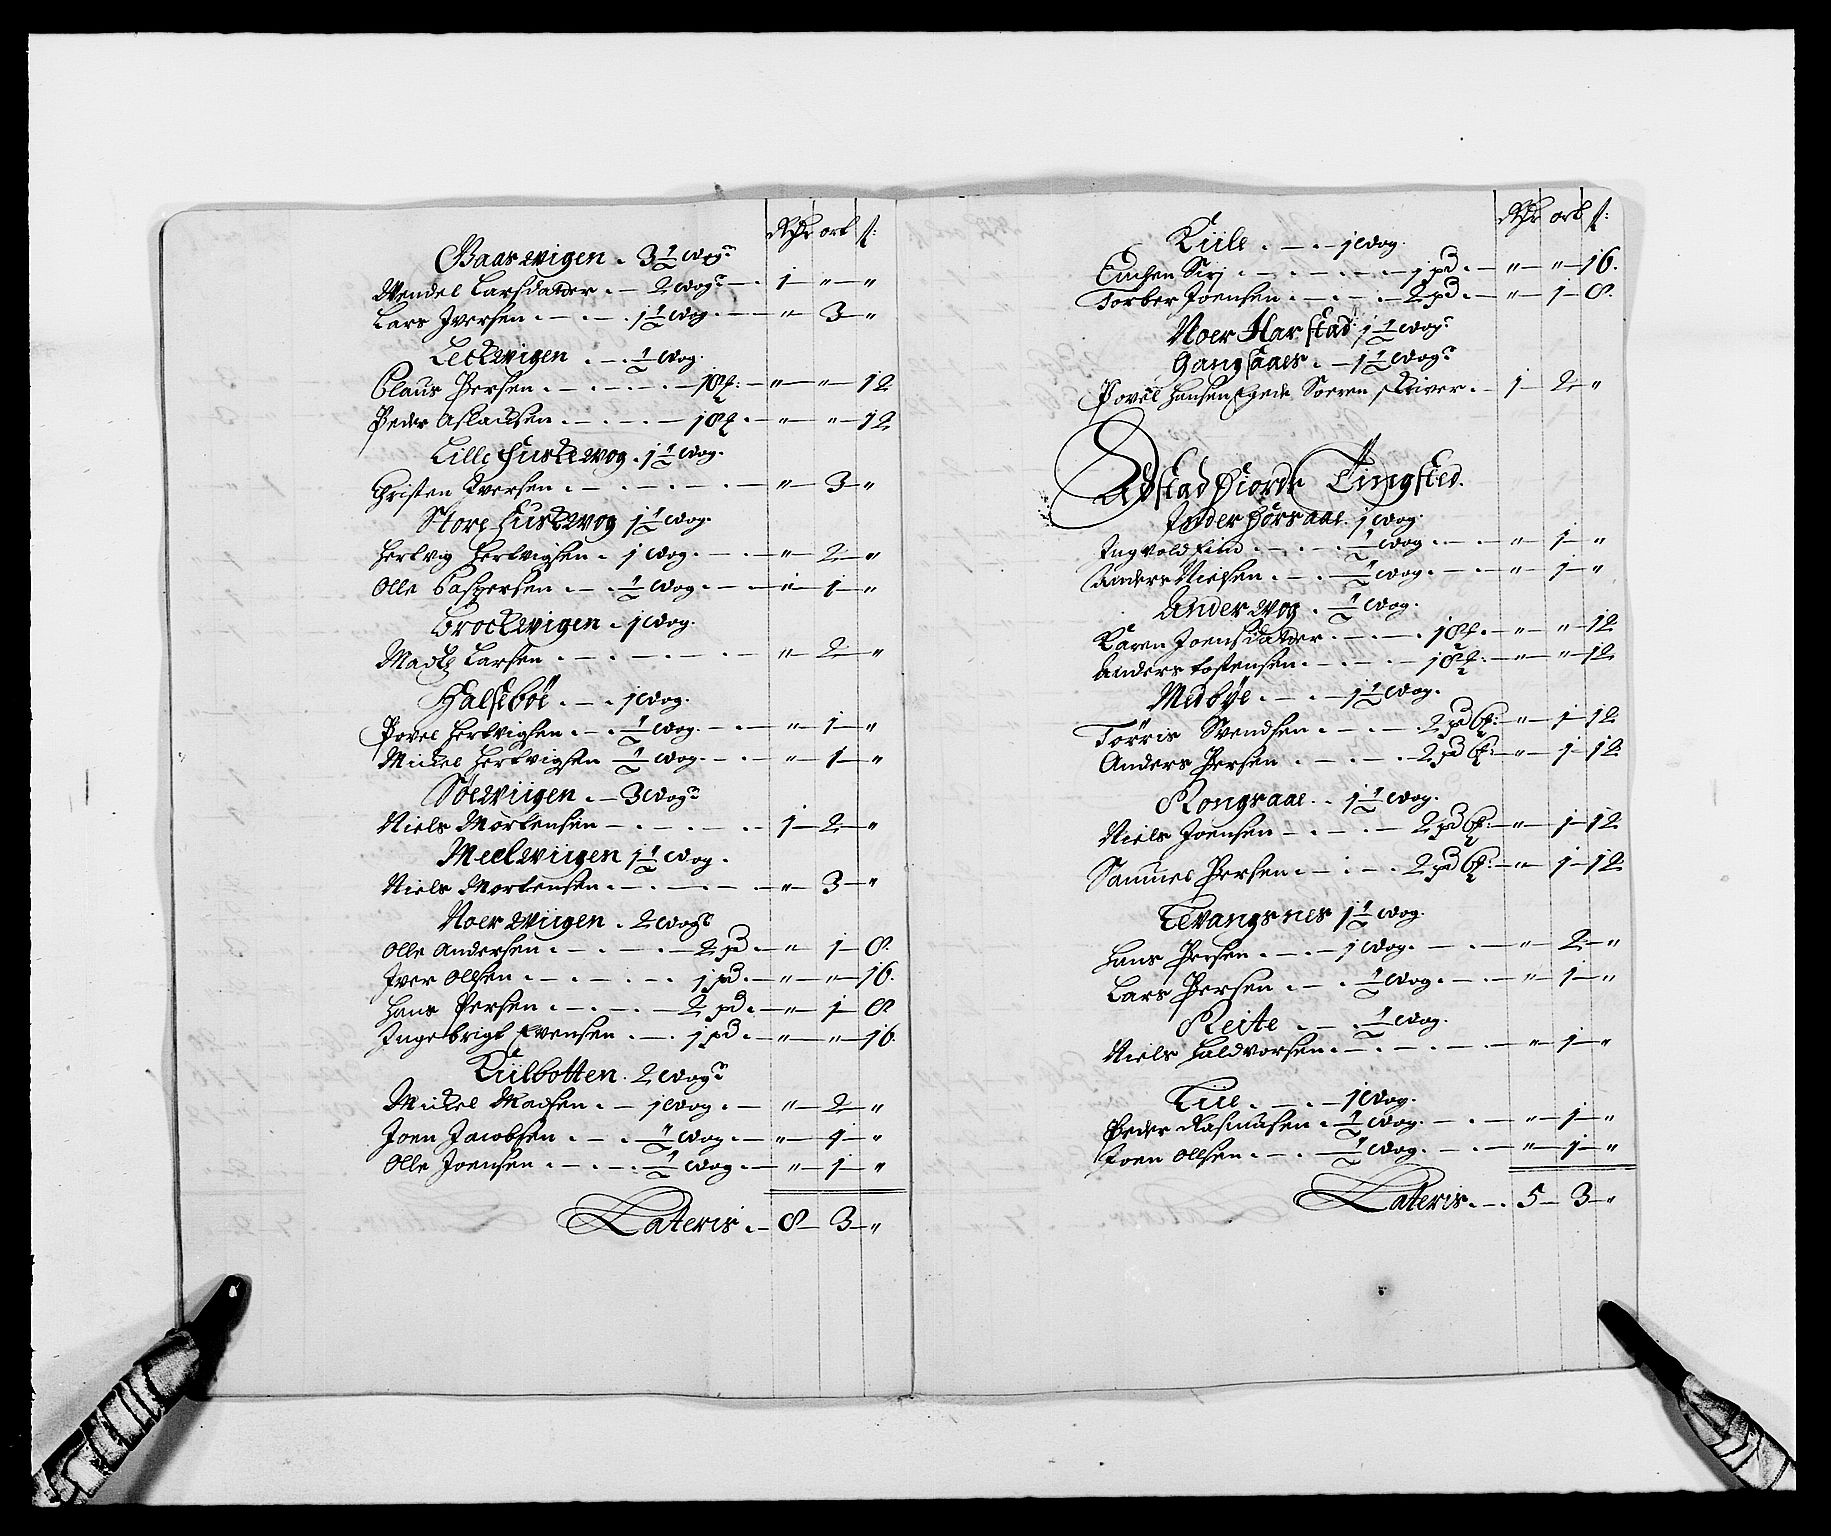 Rdr ort ß:
Baarwigen . 3½ wog:
Wendel Larsdatter . — 2 wog: — . 1 — " — "
Lars Iversen . — . — . 1½ wog. — . — " — 3 — "
Leckwigen . — . ½ wog.
Claus Persen . — . — . — . — 18 ℔: — " — " — 12
Peder Aslaksen . — . — . — 18 ℔ . — " — " — 12
Lille Furkewog . 1½ wog.
Christen Iversen . — . — . — . — . — " — 3 — "
Store Furkewog 1½ wog.
Hertvig Hertvigsen . 1 wog . — . — " — 2 — "
Olle Caspersen . — . ½ wog . — . — " — 1 — "
Brockwigen . 1 wog.
Madtz Larsen . — . — . — . — . — " — 2 — "
Halseböe . — . 1 wog.
Povel Hertvigsen . — . ½ wog. — . — " — 1 — "
Mickel Hertvigsen ½ wog. — . — " — 1 — "
Söewiigen . — 3 wog:
Niels Mortensen — . — . — . — . 1 — 2 — "
Meelwiigen 1½ wog.
Niels Mortensen . — . — . — . — " — 3 — "
Noerwiigen . 2 wog:
Olle Andersen . — . — . — 2 pd . — " — 1 — 8.
Iver Ollsen . — . — . — . 1 pd . — " — " — 16.
Hans Persen . — . — . — 2 pd . — " — 1 — 8
Ingebrigt Evensen . — . 1 pd . — " — " — 16.
Kulbotten . 2 wog:
Mickel Madsen . — 1 wog . — " — 2 — "
Joen Jacobsen . — . ½ wog . — " — 1 — "
Olle Joensen . — . — . ½ wog . — " — 1 — "
Lateris . — 8 — 3 — "
Rdr ort ß:
Kiile . — . — 1 wog.
Enchen Siri . — . — . — . — 1 pd . — " — " — 16.
Torber Joensen . — . — . — 2 pd . — " — 1 — 8.
Noer Harstad . 1½ wog:
Gangsaaes . — 1½ wog:
Povel Hansen Egede Soeren skriver . — 1 — 2 — "
Adstad Fiords Tingsted.
Inder Hörsaae . 1 wog.
Ingvold Find . — . — . ½ wog . — . — " — 1 — "
Anders Nielsen . — . ½ wog . — . — " — 1 — "
Anderwog . ½ wog.
Karen Joensdatter . — . — . 18 ℔ . — " — " — 12
Anders Tostensen . — . — . 18 ℔: — " — " — 12
Medbye . — . 1½ wog.
Törris Svendsen . — . — . 2 pd 6 ℔: — " — 1 — 12
Anders Persen . — . — . 2 pd 6 ℔: — " — 1 — 12
Rongsaae . . 1½ wog.
Niels Joensen — . — . — 2 pd 6 ℔: — " — 1 — 12
Samuel Persen . — . — . 2 pd 6 ℔: — " — 1 — 12
Tevangsnes 1½ wog.
Hans Persen . — . — 1 wog . — . — " — 2 — "
Lars Persen . — . ½ wog . — . — " — 1 — "
Reite . — . ½ wog.
Niels Haldvorsen . — . — . — . — " — 1 — "
Tiie . — . — 1 wog.
Peder Rasmusen . ½ wog . — . — " — 1 — "
Joen Ollsen . — . — ½ wog . — . — " — 1 — "
Lateris . — . 5 — 3 — "